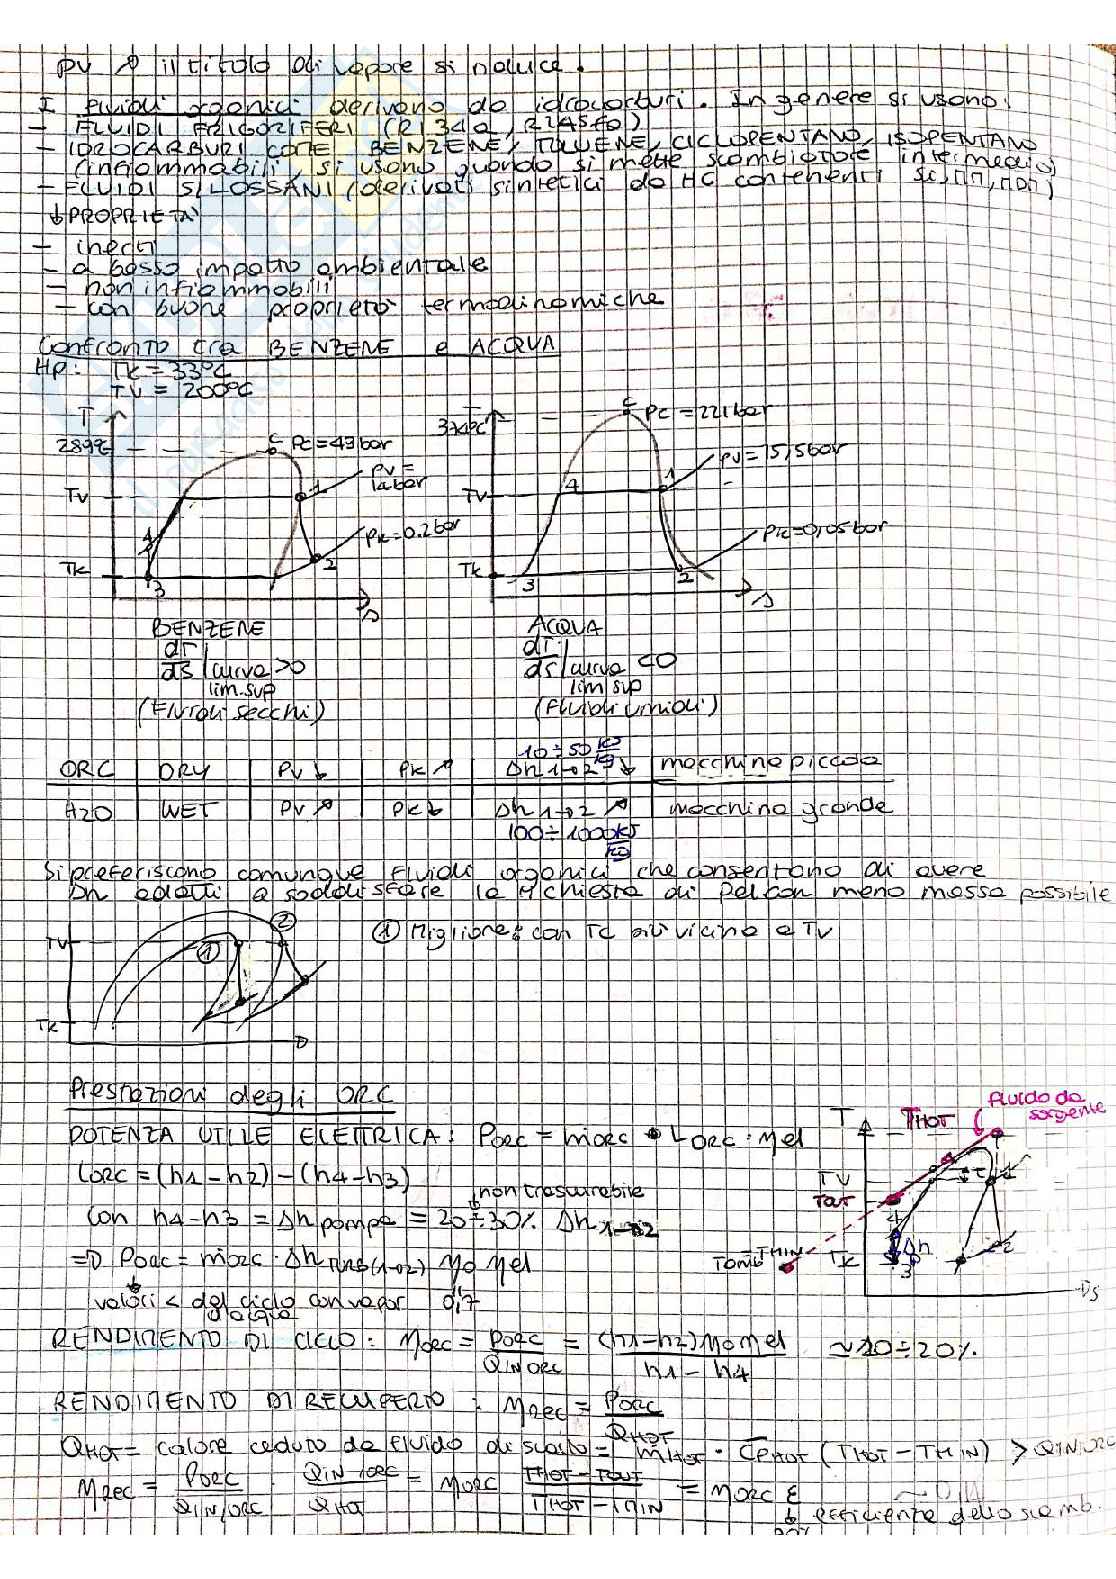 pv ↗ il titolo di vapore si riduce.
I fluidi organici derivano da idrocarburi. In genere si usano:
- FLUIDI FRIGORIFERI (R134a, R245fa)
- IDROCARBURI COME BENZENE, TOLUENE, CICLOPENTANO, ISOPENTANO
(infiammabili, si usano quando si mette scambiatore intermedio)
- FLUIDI SILOSSANI (derivati sintetici da HC contenenti Si,
↓ PROPRIETA'
- inerti
- a basso impatto ambientale
- non infiammabili
- con buone proprietà termodinamiche
Confronto tra BENZENE e ACQUA
Hp: Tk = 33°C
TV = 200°C
T
289°C
C
Pc = 49 bar
TV
1
pv =
bar
4
Pk = 0.2 bar
Tk
3
2
s
T
374°C
C
Pc = 221 bar
TV
4
1
pv = 15,5 bar
Pk = 0,05 bar
Tk
3
2
s
BENZENE
dT/ds | curva lim.sup > 0
(Fluidi secchi)
ACQUA
dT/ds | curva lim sup < 0
(Fluidi umidi)
10÷50 kJ/kg
ORC | DRY | pv ↓ | Pk ↗ | Δh 1→2 ↓ | macchina piccola
H2O | WET | pv ↗ | Pk ↓ | Δh 1→2 ↗ | macchina grande
100÷1000 kJ/kg
Si preferiscono comunque fluidi organici che consentano di avere
Δh adatti a soddisfare la richiesta di Pel con meno massa possibile
TV
1
2
Tk
s
① Migliore: con Tc più vicino a Tv
Prestazioni degli ORC
POTENZA UTILE ELETTRICA: PORC = ṁORC • LORC · ηel
LORC = (h1-h2) - (h4-h3)
non trascurabile
con h4-h3 = Δh pompa = 20÷30% Δh 1→2
=D PORC = ṁORC · Δh TURB(1→2) ηo ηel
valori < del ciclo con vapor d'acqua 0,7
fluido da sorgente
T
THOT
TV
TOUT
4
1
TAMB = TMIN
Tk
Δh
3
2
s
RENDIMENTO DI CICLO: ηORC = PORC / QIN ORC = (h1-h2) ηo ηel / h1 - h4 ≃ 10÷20%
RENDIMENTO DI RECUPERO: ηrec = PORC / QHOT
QHOT = calore ceduto da fluido di scarto = ṁHOT · CPHOT (THOT - TMIN) > QIN,ORC
ηrec = PORC / QIN,ORC · QIN,ORC / QHOT = ηORC THOT - TOUT / THOT - TMIN = ηORC ε
efficienza dello scamb.